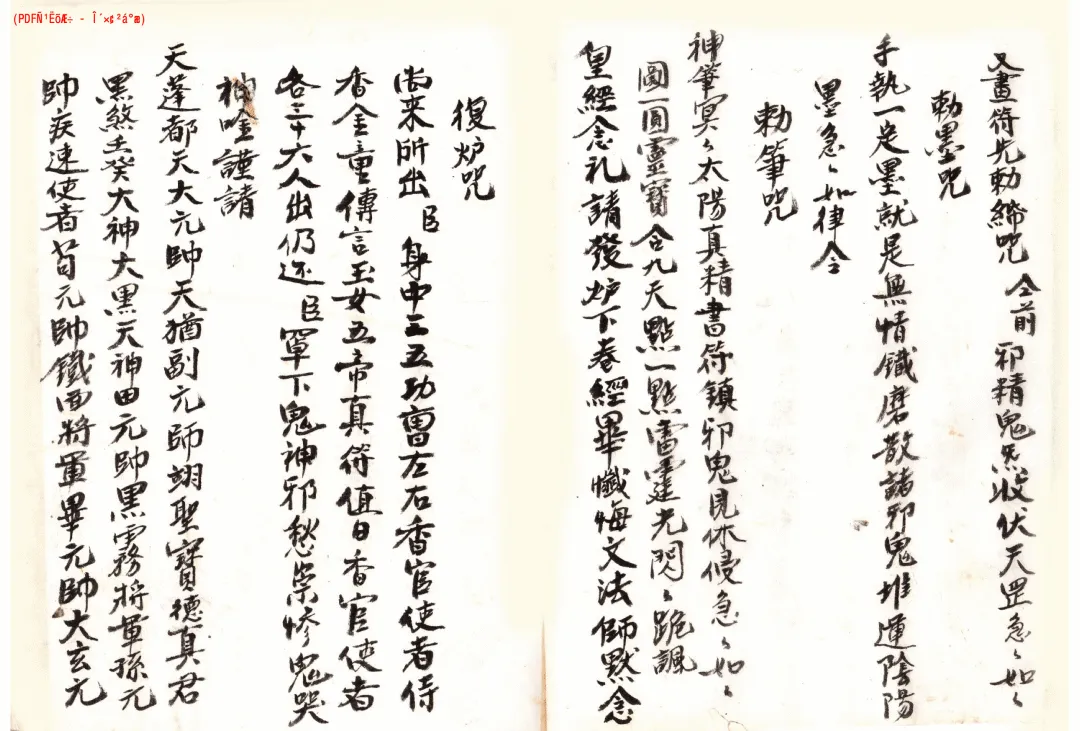 (PDFÑ¹ËõÆ÷ - Î´×¢²á°æ)
又畫符先勅締咒 仝前 邪精鬼炁收伏天罡急〻如〻
勅墨咒
手執一定墨就是無情鐵磨散諸邪鬼堆運陰陽
墨急〻如律令
勅筆咒
神筆冥〻太陽真精書符鎮邪鬼見休侵急〻如〻
圓一圓靈寶合九天點一點雷霆光閃〻跪諷
皇經念礼請發炉下卷經畢懺悔文法師黙念
復炉咒
尚来所出臣身中三五功曹左右香官使者侍
香金童傳言玉女五帝真符值日香官使者
各三十六人出仍还臣罩下鬼神邪愁祟惨鬼哭
神唫謹請
天蓬都天大元帥天猶副元師翊聖寶德真君
黑煞壬癸大神大黑天神田元帥黑霧將軍孫元
帥疾速使者苟元帥鐵面將軍畢元帥大玄元